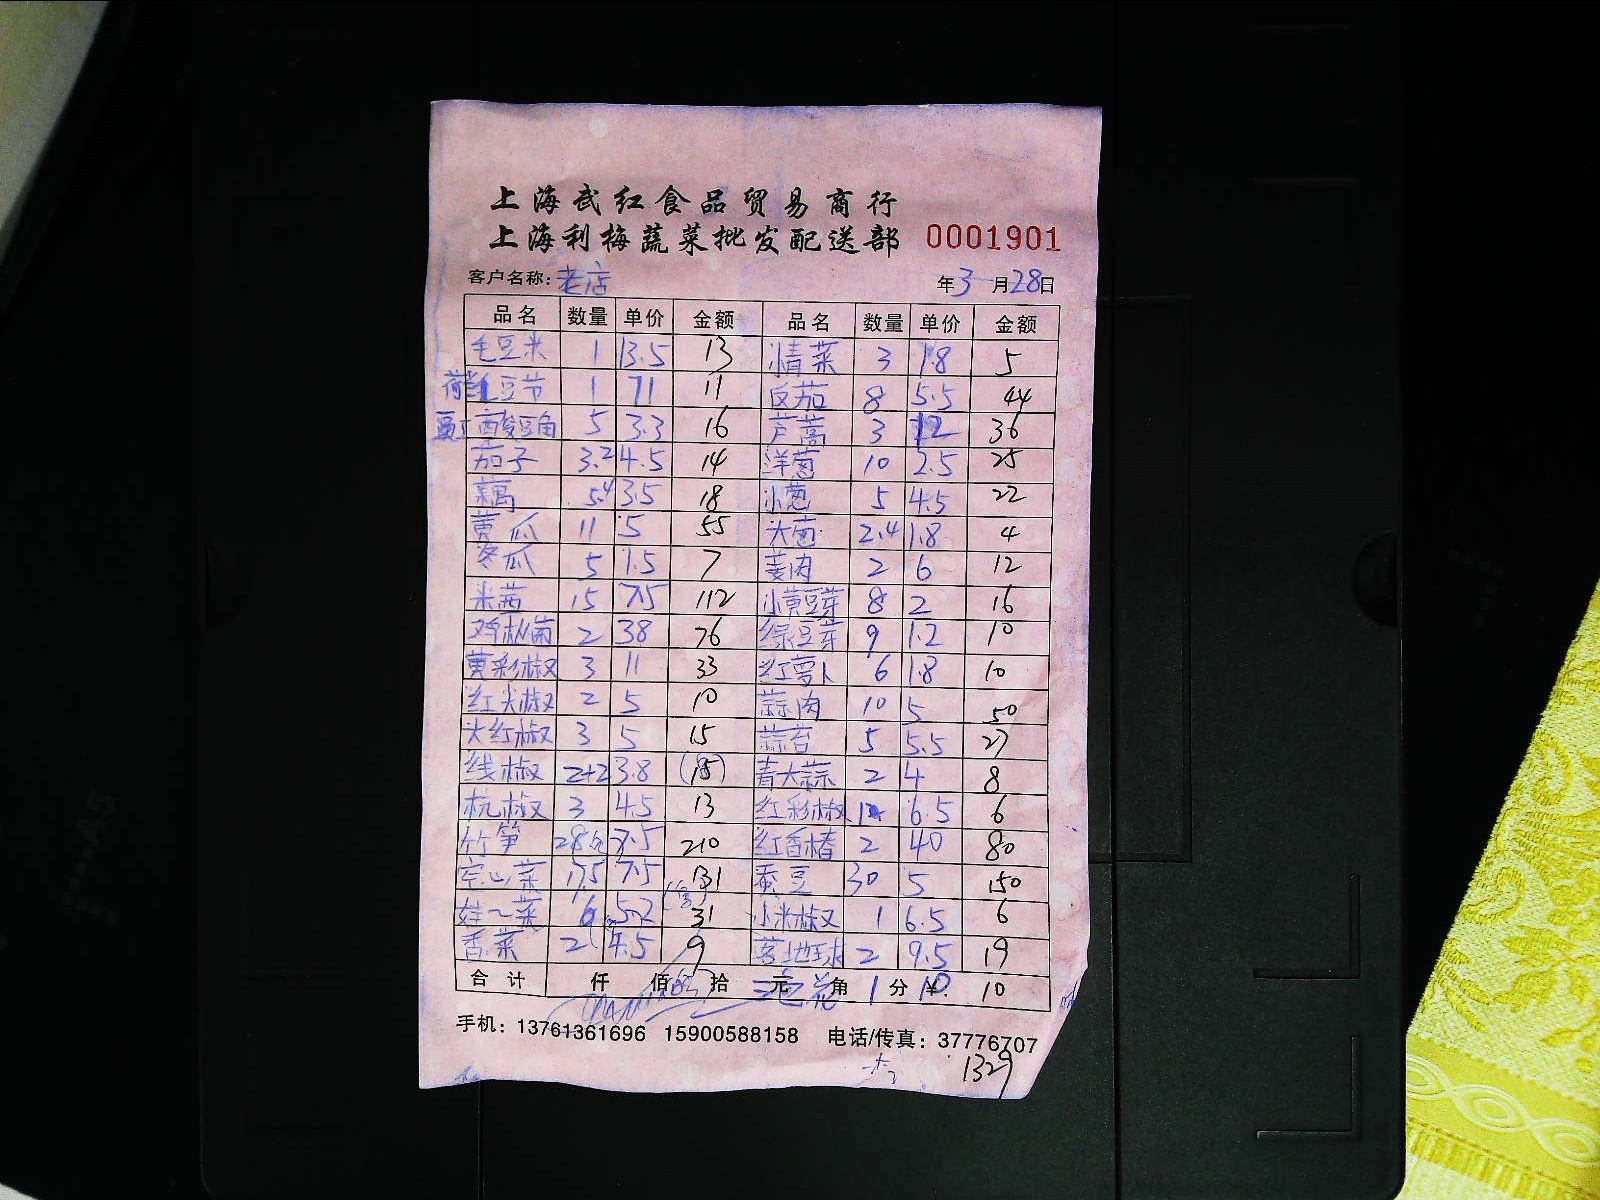 上海武红食品贸易商行
上海利梅蔬菜批发配送部 0001901
客户名称: 老店 年3月28日
品名 数量 单价 金额 品名 数量 单价 金额
毛豆米 1 13.5 13 清菜 3 1.8 5
豆节 1 11 11 反茄 8 5.5 44
酸豆角 5 3.3 16 芦蒿 3 12 36
茄子 3.2 4.5 14 洋葱 10 2.5 25
藕 5.4 3.5 18 小葱 5 4.5 22
黄瓜 11 5 55 大葱 2.4 1.8 4
冬瓜 5 1.5 7 姜肉 2 6 12
米茜 15 7.5 112 小黄豆芽 8 2 16
鸡枞菌 2 38 76 绿豆芽 9 1.2 10
黄彩椒 3 11 33 红萝卜 6 1.8 10
红尖椒 2 5 10 蒜肉 10 5 50
大红椒 3 5 15 蒜苔 5 5.5 27
线椒 2+2 3.8 (15) 青大蒜 2 4 8
杭椒 3 4.5 13 红彩椒 1 6.5 6
竹笋 28 7.5 210 红香椿 2 40 80
空心菜 17.5 7.5 131 蚕豆 30 5 150
娃~菜 6 5.2 31 小米椒 1 6.5 6
香菜 2 4.5 9 落地球 2 9.5 19
合计 仟 佰 拾 元 角 1 分 ¥: 10 10
手机: 13761361696 15900588158 电话/传真: 37776707
1329